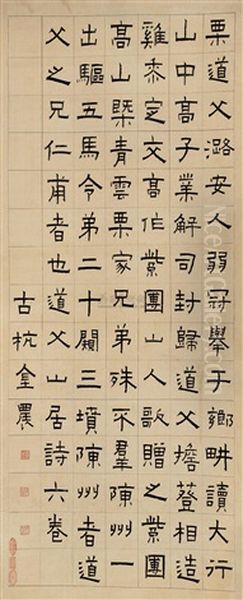 栗道父潞安人弱冠舉于鄉畊讀大行
山中高子業解司封歸道父擔簦相造
雞黍定交高作紫團山人歌贈之紫團
高山槩青雲栗家兄弟殊不羣陳州一
出驅五馬令弟二十三墳陳州者道
父之兄仁甫者也道父山居詩六卷
古杭金農